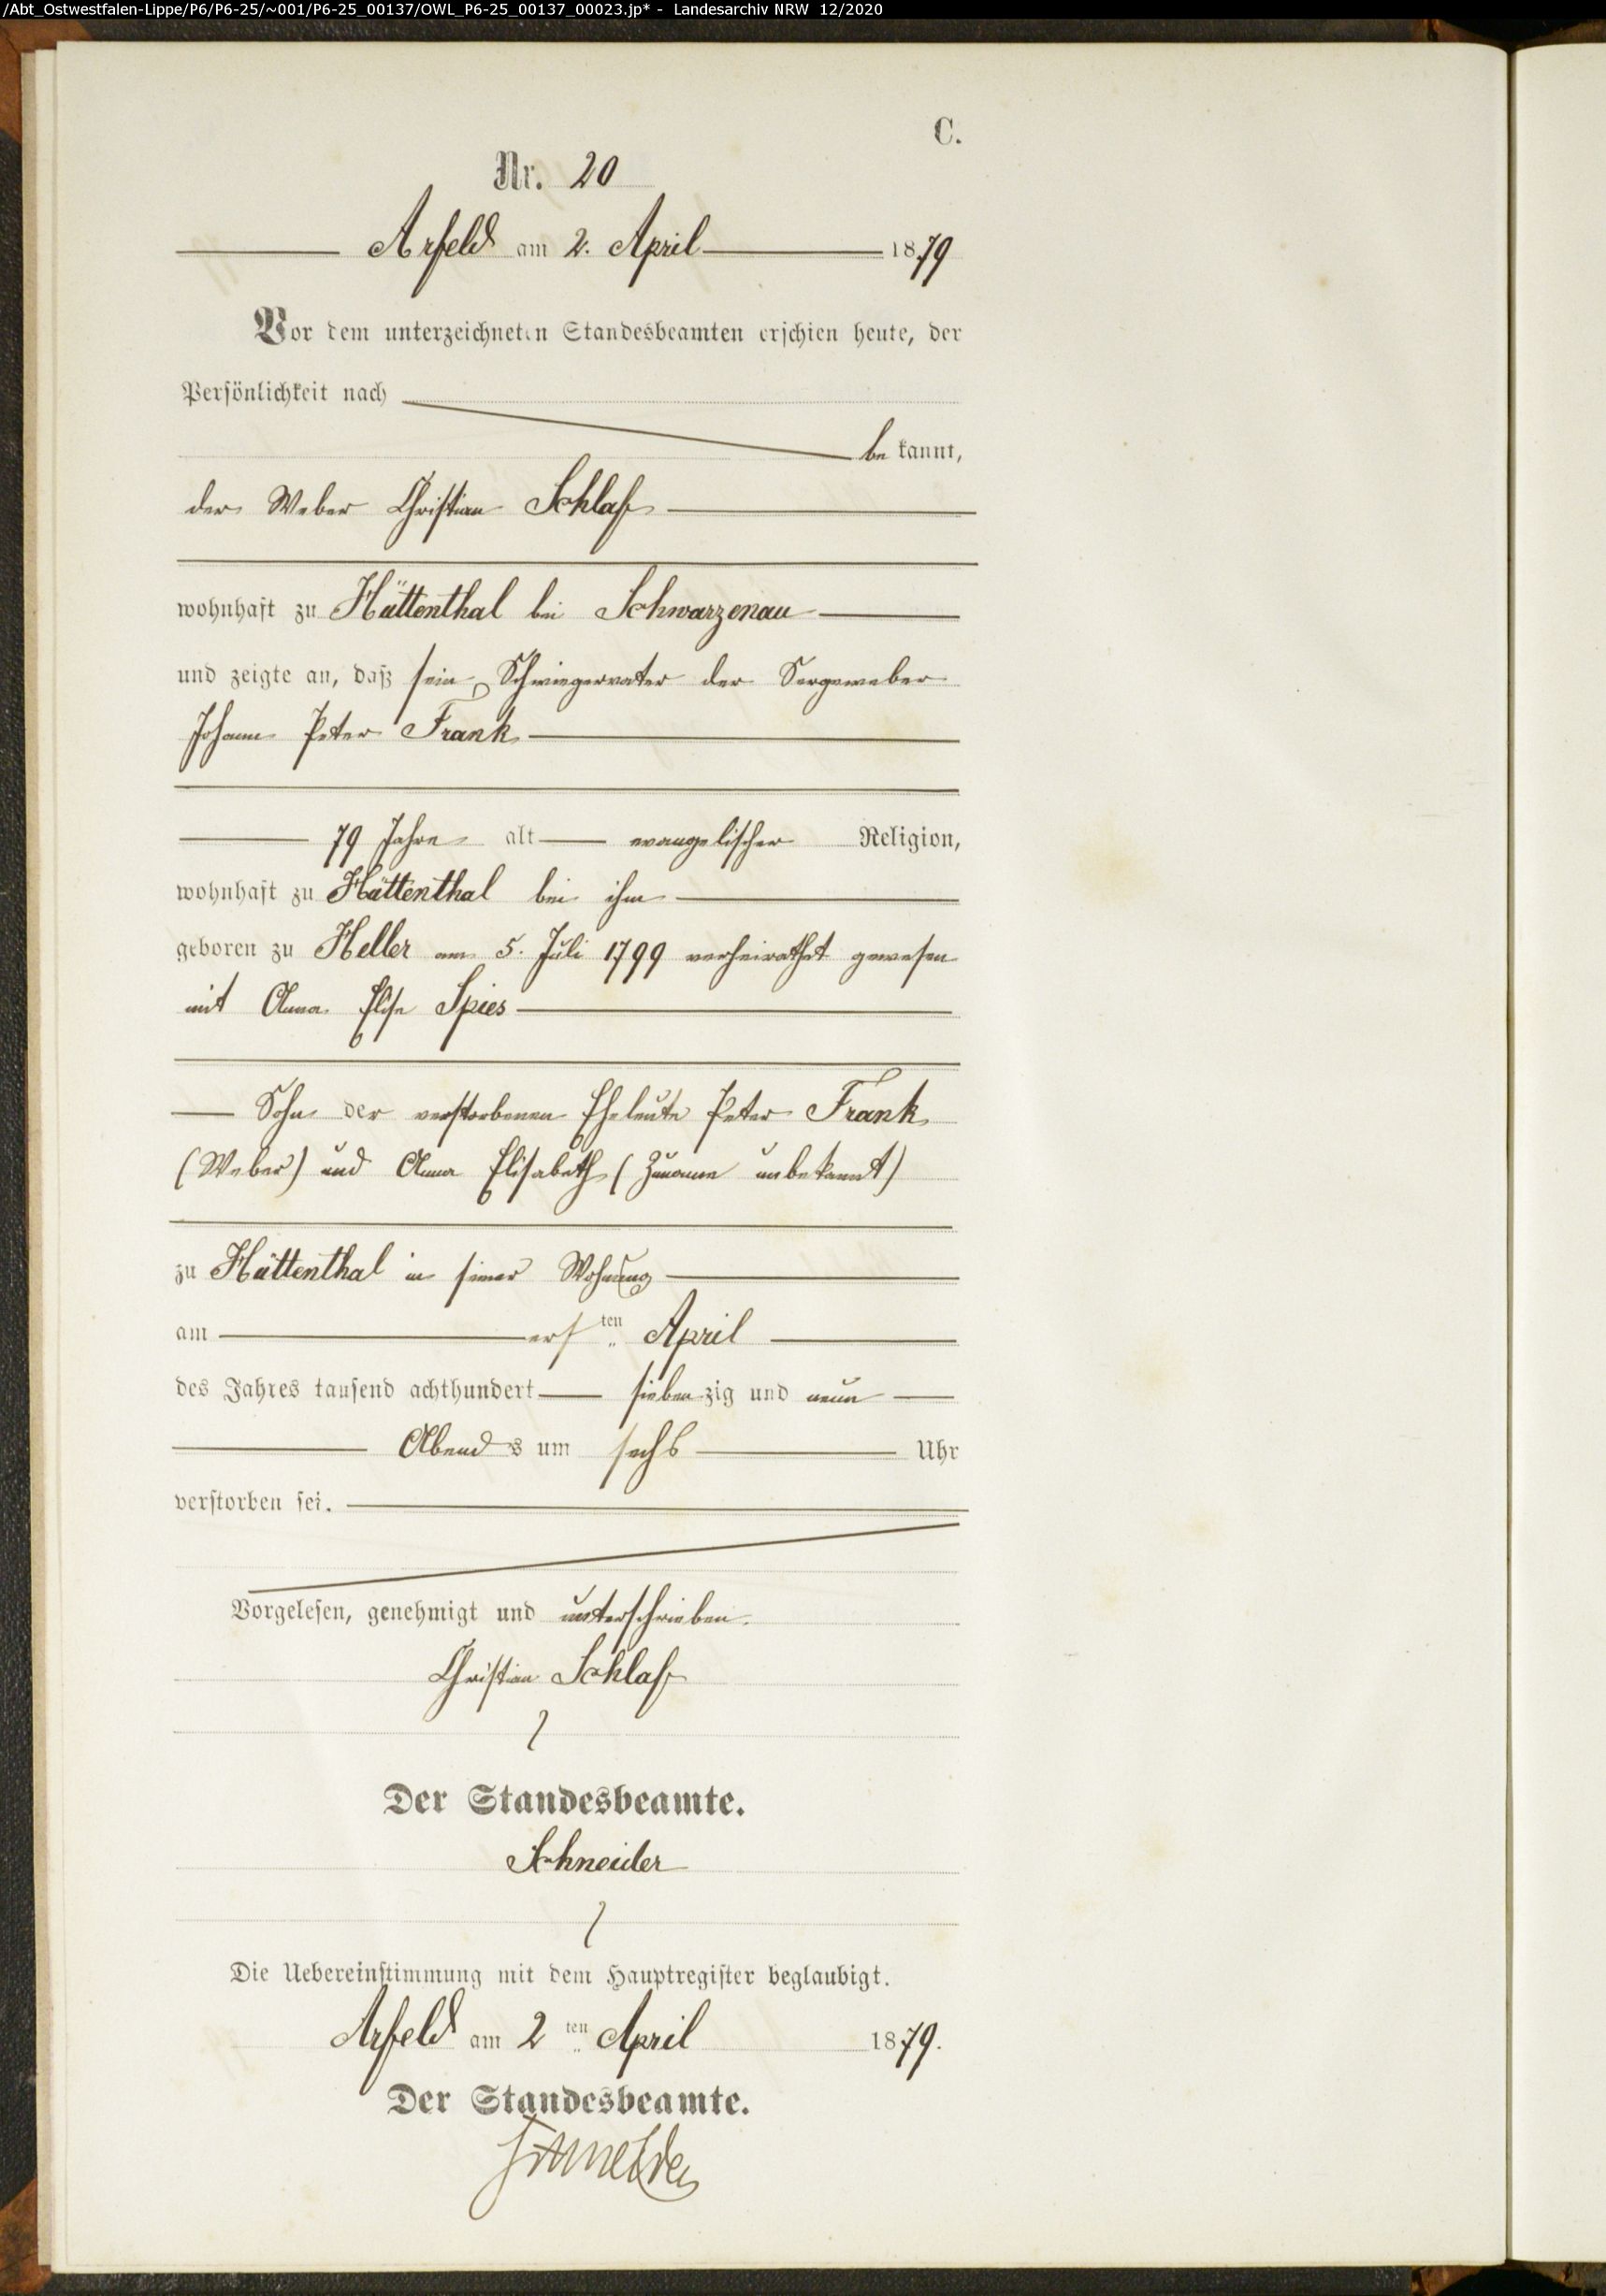 /Abt_Ostwestfalen-Lippe/P6/P6-25/~001/P6-25_00137/OWL_P6-25_00137_00023.jp* - Landesarchiv NRW 12/2020
C.
Nr. 20
Arfeld am 2. April 1879
Vor dem unterzeichneten Standesbeamten erschien heute, der
Persönlichkeit nach
be kannt,
der Weber Christian Schlaf
wohnhaft zu Hüttenthal bei Schwarzenau
und zeigte an, daß sein Schwiegervater der Sergeweber
Johann Peter Frank
79 Jahre alt evangelischer Religion,
wohnhaft zu Hüttenthal bei ihm
geboren zu Heller am 5. Juli 1799 verheirathet gewesen
mit Anna Elise Spies
Sohn der verstorbenen Eheleute Peter Frank
(Weber) und Anna Elisabeth (Zuname unbekannt)
zu Hüttenthal in seiner Wohnung
am ersten April
des Jahres tausend achthundert siebenzig und neun
Abends um sechs Uhr
verstorben sei.
Vorgelesen, genehmigt und unterschrieben.
Christian Schlaf
Der Standesbeamte.
Schneider
Die Uebereinstimmung mit dem Hauptregister beglaubigt.
Arfeld am 2ten April 1879.
Der Standesbeamte.
Schneider